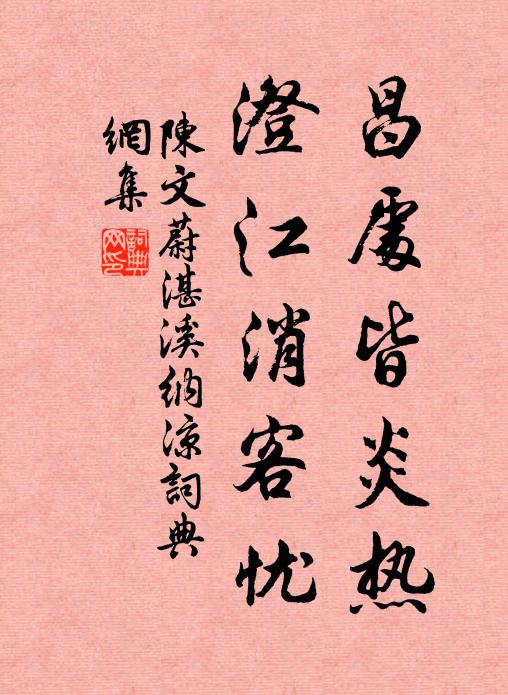 昌處皆炎热
澄江消客忧
陳文蔚湛溪納涼詞典
網集
詞典網印